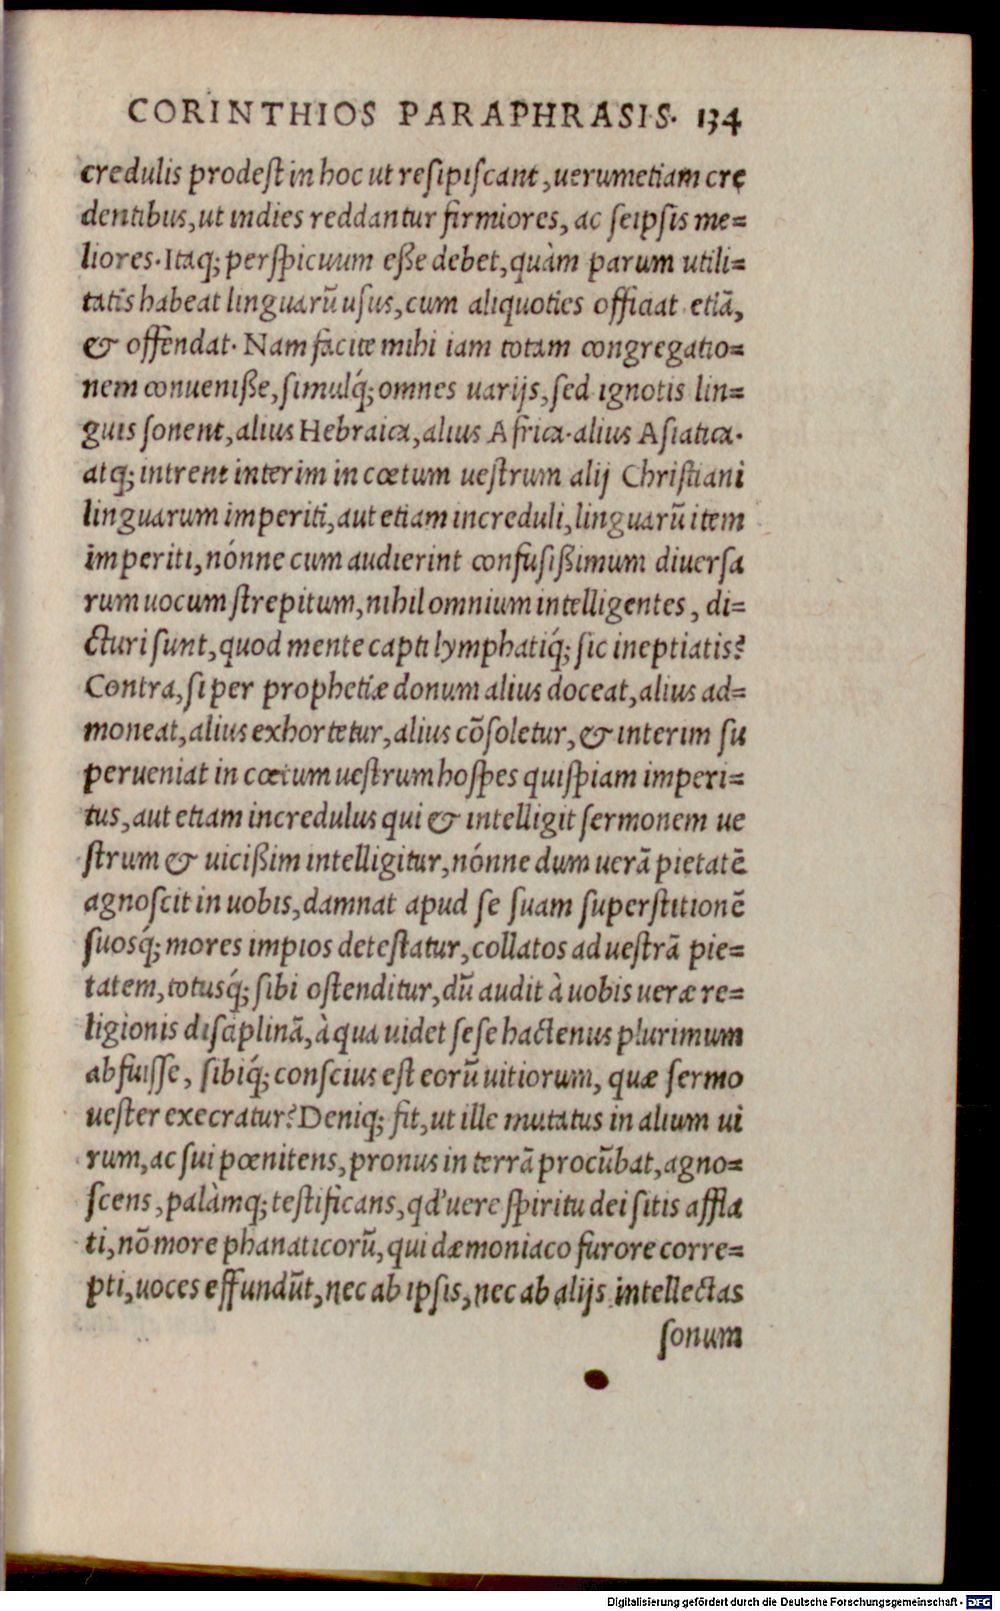 CORINTHIOS PARAPHRASIS. 134
credulis prodest in hoc ut resipiscant, uerumetiam cre
dentibus, ut indies reddantur firmiores, ac seipsis me=
liores. Itaq; perspicuum eße debet, quàm parum utili=
tatis habeat linguarũ usus, cum aliquoties officiat etiã,
& offendat. Nam facite mihi iam totam congregatio=
nem conueniße, simulq́; omnes uarijs, sed ignotis lin=
guis sonent, alius Hebraica, alius Africa. alius Asiatica.
atq; intrent interim in cœtum uestrum alij Christiani
linguarum imperiti, aut etiam increduli, linguarũ item
imperiti, nónne cum audierint confusißimum diuersa
rum uocum strepitum, nihil omnium intelligentes, di=
cturi sunt, quod mente capti lymphatiq́; sic ineptiatis?
Contra, si per prophetiæ donum alius doceat, alius ad=
moneat, alius exhortetur, alius cõsoletur, & interim su
perueniat in cœtum uestrum hospes quispiam imperi=
tus, aut etiam incredulus qui & intelligit sermonem ue
strum & uicißim intelligitur, nónne dum uerã pietatẽ
agnoscit in uobis, damnat apud se suam superstitionẽ
suosq́; mores impios detestatur, collatos ad uestrã pie=
tatem, totusq́; sibi ostenditur, dũ audit à uobis ueræ re=
ligionis disciplinã, à qua uidet sese hactenus plurimum
abfuisse, sibiq́; conscius est eorũ uitiorum, quæ sermo
uester execratur? Deniq; fit, ut ille mutatus in alium ui
rum, ac sui pœnitens, pronus in terrã procũbat, agno=
scens, palàmq; testificans, qd' uere spiritu dei sitis affla
ti, nõ more phanaticorũ, qui dæmoniaco furore corre=
pti, uoces effundũt, nec ab ipsis, nec ab alijs intellectas
sonum
Digitalisierung gefördert durch die Deutsche Forschungsgemeinschaft - DFG